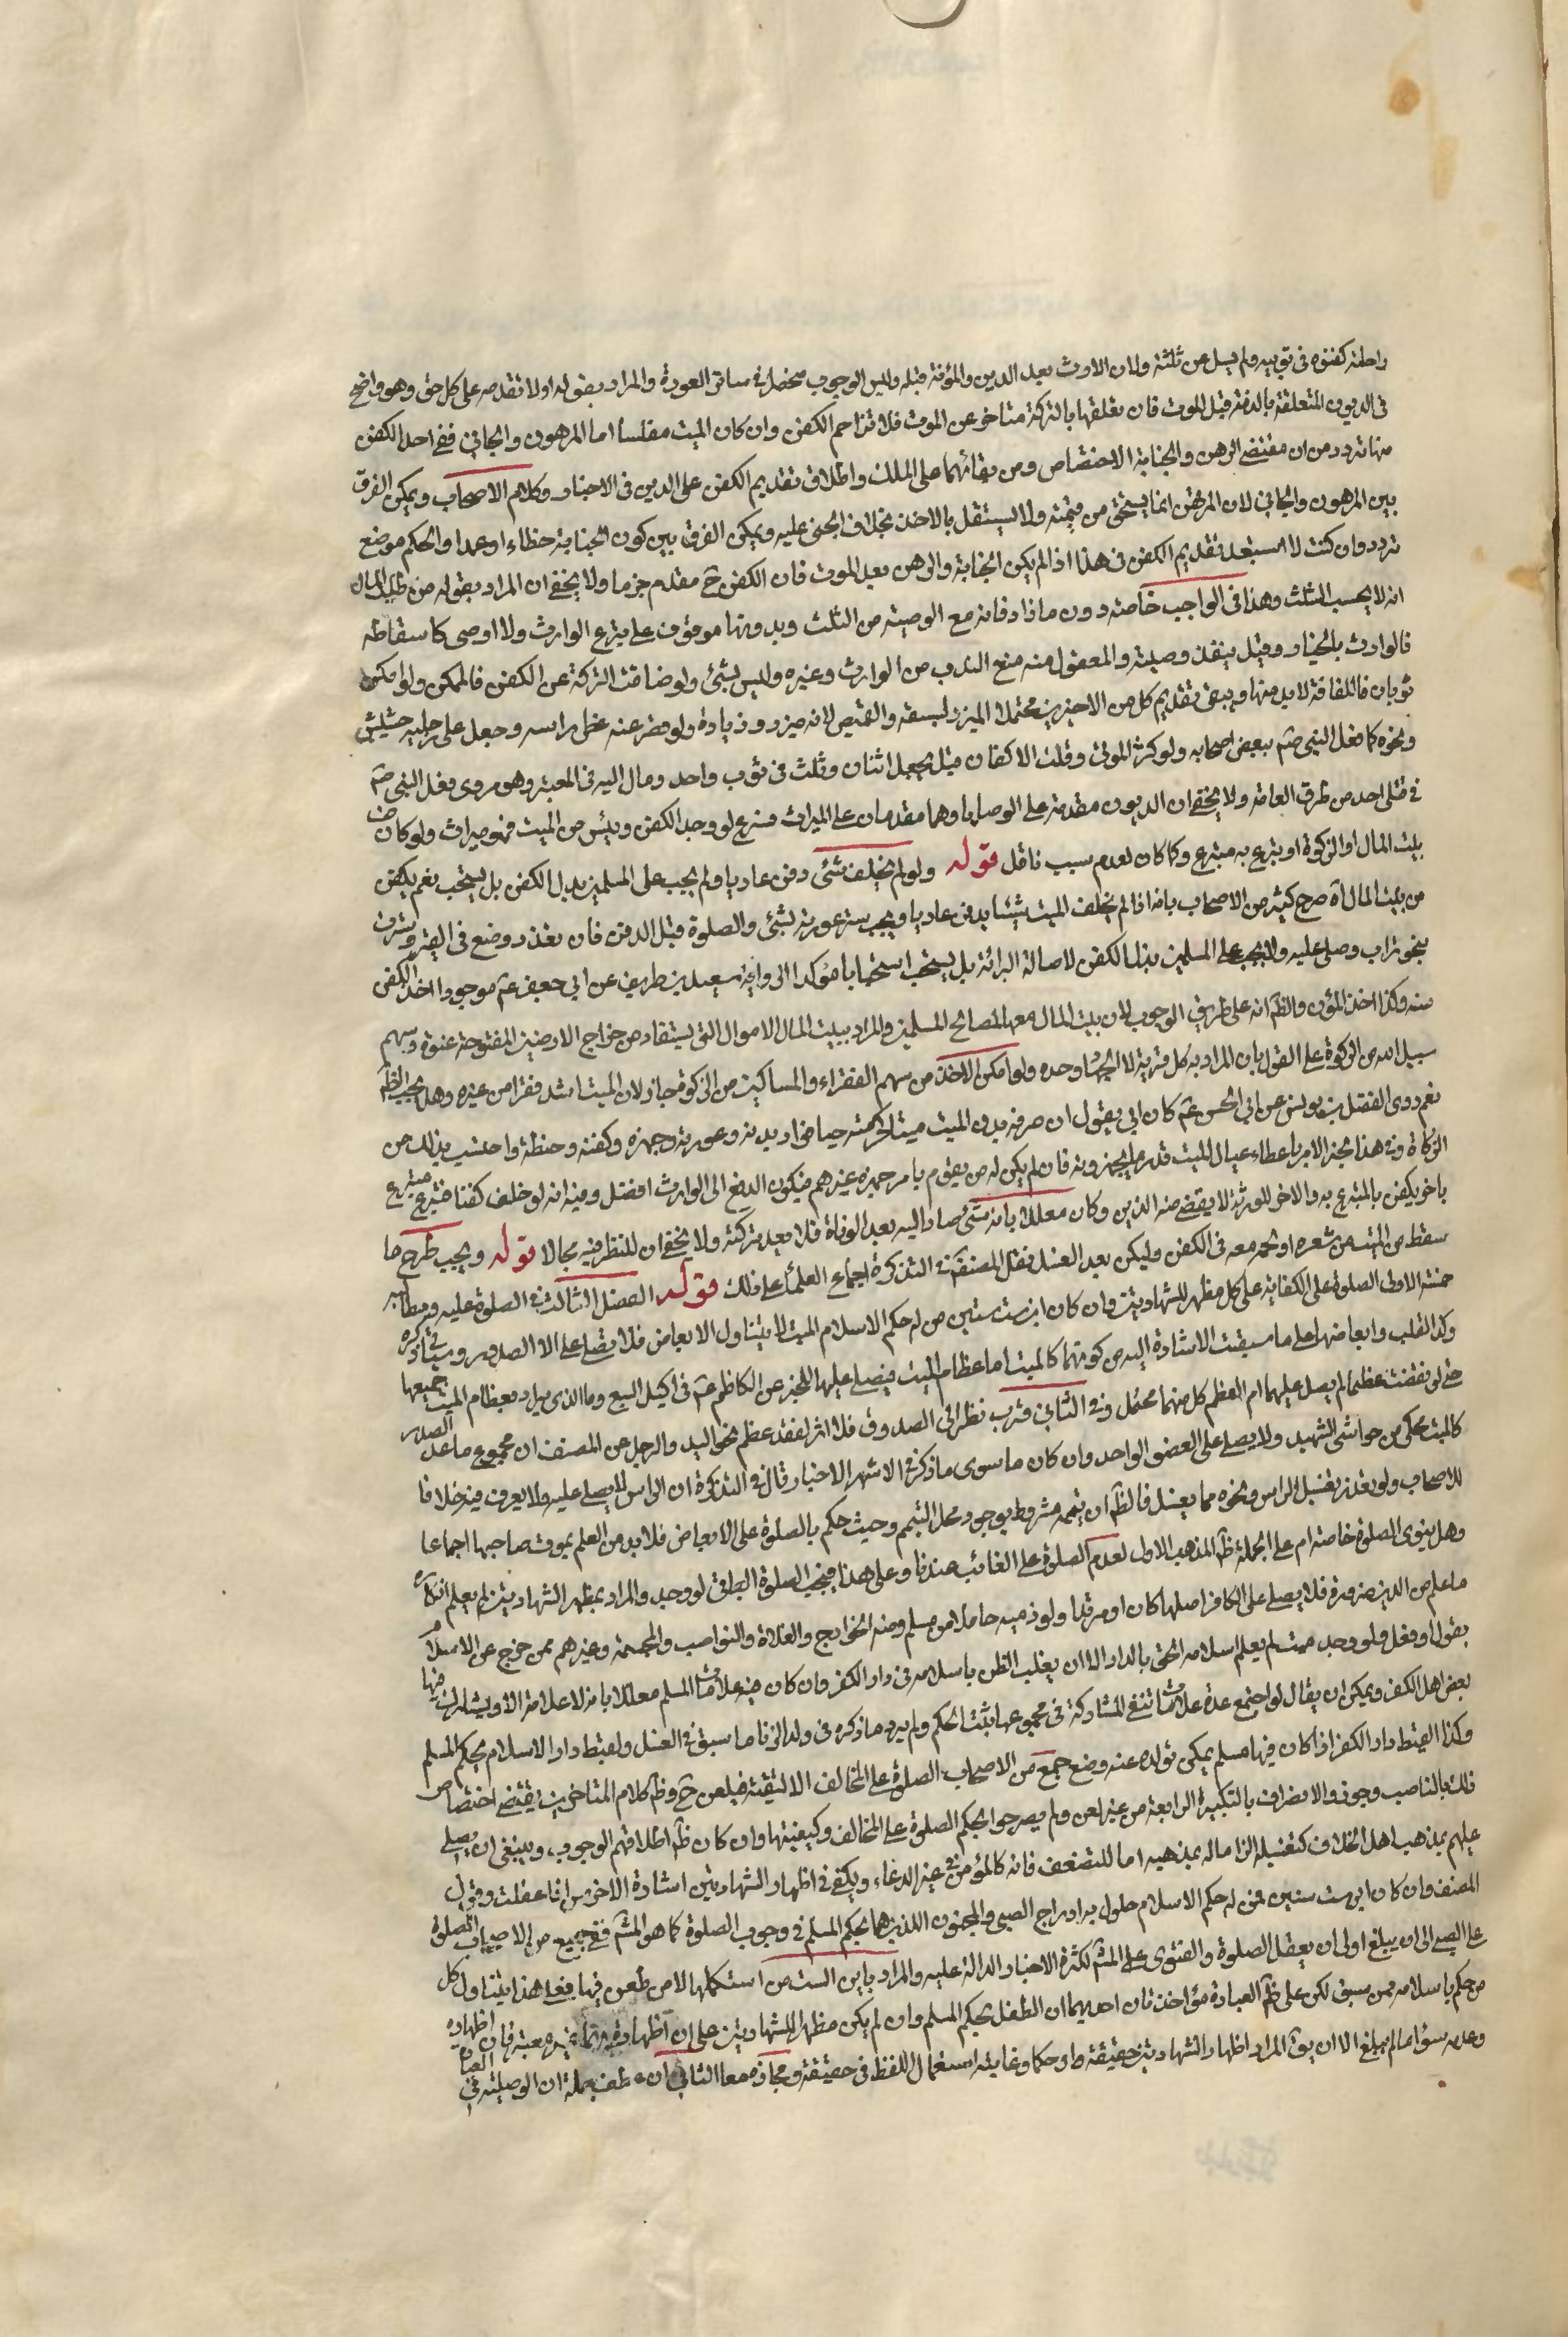 راحلته كفنوه فى ثوبيه ولم يسل عن ثلثه ولان الارث بعد الدين والمؤنة قبله وليس الوجوب منحصرا فى ساتر العورة والمراد بقوله اولا تقدمه على كل حق وهو واضح
فى الديون المتعلقة بالذمة قبل الموت فان تعلقها بالتركة متاخر عن الموت فلا تزاحم الكفن وان كان الميت مفلسا اما المرهون والجانى ففى احد الكفن
منها تردد من ان مقتضى الرهن والجناية الاختصاص ومن بقائهما على الملك واطلاق تقديم الكفن على الدين فى الاخبار وكلام الاصحاب ويمكن الفرق
بين المرهون والجانى لان المرتهن انما يستحق من قيمته ولا يستقل بالاخذ بخلاف المجنى عليه ويمكن الفرق بين كون الجناية خطاء او عمدا والحكم موضع
تردد وان كنت لا استبعد تقديم الكفن فى هذا اذا لم يكن الجناية والرهن بعد الموت فان الكفن ح مقدم جزما ولا يخفى ان المراد بقوله من صلب المال
انه لا يحسب من الثلث وهذا فى الواجب خاصة دون ما زاد فانه مع الوصية من الثلث وبدونها موقوف على تبرع الوارث ولو اوصى باسقاطه
فالوارث بالخيار وقيل ينفذ وصيته والمعقول منه منع الندب من الوارث وغيره وليس بشئ ولو ضاقت التركة عن الكفن فالممكن ولو امكن
ثوبان فاللفافة لا بد منها ويبقى تقديم كل من الاخيرين محتملا الميزر لسبقه والقميص لانه ميزر وزيادة ولو قصر عنه غطى راسه وجعل على رجليه حشيش
ونحوه كما فعل النبى صم ببعض اصحابه ولو كثر الموتى وقلت الاكفان قيل يجعل اثنان وثلث فى ثوب واحد ومال اليه فى المعتبر وهو مروى بفعل النبى صم
فى قتلى احد من طرق العامة ولا يخفى ان الديون مقدمة على الوصايا وهما مقدمان على الميراث فرع لو وجد الكفن ويئس من الميت فهو ميراث ولو كان من
بيت المال او الزكوة او تبرع به متبرع وكا كان لعدم سبب ناقل قوله ولو لم يخلف شئ دفن عاريا ولم يجب على المسلمين بذل الكفن بل يستحب نعم يكفن
من بيت المال اه صرح كثير من الاصحاب بانه اذا لم يخلف الميت شيئا يدفن عاريا ويجب ستر عورته بشئ والصلوة قبل الدفن فان تعذر وضع فى القبر وسترت
بنحو تراب وصلى عليه ولا يجب على المسلمين بذل الكفن لاصالة البرائة بل يستحب استحبابا مؤكدا لرواية سعد بن طريف عن ابى جعفر عم موجودا اخذ الكفن
منه وكذا اخذ المؤن والظ انه على طريق الوجوب لان بيت المال معد لمصالح المسلمين والمراد ببيت المال الاموال التى يستفاد من خراج الارضين المفتوحة عنوة وسهم
سبيل الله من الزكوة على القول بان المراد به كل قربة لا الجهاد وحده ولو امكن الاخذ من سهم الفقراء والمساكين من الزكوة جاز لان الميت اشد فقرا من غيره وهل يجب الظ
نعم روى الفضل بن يونس عن ابى الحسن عم كان ابى يقول ان حرمة بدن الميت ميتا كحرمته حيا فوار بدنه وعورته وجهزه وكفنه وحنطه واحتسب بذلك من
الزكاة وفى هذا الخبر الامر باعطاء عيال الميت قدر ما يجهزونه فان لم يكن له من يقوم بامر جهزه غيرهم فيكون الدفع الى الوارث افضل وفيه انه لو خلف كفنا فتبرع متبرع
باخر يكفن بالمتبرع به والاخر للورثة لا يقضى منه الدين وكان معللا بانه شئ صار اليه بعد الوفاة فلا يعد تركته ولا يخفى ان للنظر فيه مجالا قوله ويجب طرح ما
سقط من الميت من شعره او لحمه معه فى الكفن وليكن بعد الغسل فنقل المصنف فى التذكرة اجماع العلماء على ذلك قوله الفصل الثالث فى الصلوة عليه ومطالبه
خمسة الاول الصلوة على الكفاية على كل مظهر للشهادتين وان كان ابن ست سنين ممن له حكم الاسلام الميت لا يتناول الابعاض فلا يصلى على الا الصدر وسياتى ذكره
وكذا القلب وابعاضهما على ما سبقت الاشارة اليه من كونهما كالميت اما عظام الميت فيصلى عليها للخبر عن الكاظم عم فى اكيل السبع وما الذى يراد بعظام الميت جميعها
حتى لو نقصت عظما لم يصل عليها ام العظم كل منهما محتمل وفى الثانى قرب نظرا الى الصدوق فلا اثر لفقد عظم نحو اليد والرجل عن المصنف ان مجموع ما عدا الصدر
كالميت محكى من حواشى الشهيد ولا يصلى على العضو الواحد وان كان ما سوى ما ذكر فى الاشهر الاخبار قال فى التذكرة ان الراس لا يصلى عليه ولا يعرف فيه خلافا
للاصحاب ولو تعذر تغسيل الراس ونحوه مما يغسل فالظ ان تيممه مشروط بوجود محل التيمم وحيث حكم بالصلوة على الابعاض فلا بد من العلم بموت صاحبها اجماعا
وهل ينوى الصلوة خاصة ام على الجملة ظ المذهب الاول لعدم الصلوة على الغائب عندنا وعلى هذا فيجب الصلوة الباقى لو وجد والمراد بمظهر الشهادتين لم يعلم انكاره
ما علم من الدين ضرورة فلا يصلى على الكافر اصليا كان او مرتدا ولو ذمية حاملا من مسلم ومنه الخوارج والغلاة والنواصب والمجسمة وغيرهم ممن خرج عن الاسلام
بقول او فعل ولو وجد ميت لم يعلم اسلامه الحق بالدار الا ان يغلب الظن باسلامه فى دار الكفر وان كان فيه علامات المسلم معللا بانه لا علامة الا ويشارك فيها
بعض اهل الكفر ويمكن ان يقال لو اجتمع عدة علامات تنفى المشاركة فى مجموعها ثبت الحكم ولم يرد ما ذكره فى ولد الزنا ما سبق فى الغسل ولقيط دار الاسلام بحكم المسلم
وكذا لقيط دار الكفر اذا كان فيها مسلم يمكن تولده عنه ومنع جمع من الاصحاب الصلوة على المخالف الا لتقية فيلعن ح وظ كلام المتاخرين يقتضى اختصاص
ذلك بالناصب وجوز والانصراف بالتكبيرة الرابعة من غير لعن ولم يصرحوا بحكم الصلوة على المخالف وكيفيتها وان كان ظ اطلاقهم الوجوب وينبغى ان يصلى
عليهم بمذهب اهل الخلاف كتغسيله الزاما له بمذهبه اما المستضعف فانه كالمؤمن فى غير الدعاء ويكفى فى اظهار الشهادتين اشارة الاخرس اذا عقلت وقول
المصنف وان كان ابن ست سنين ممن له حكم الاسلام حاول به ادراج الصبى والمجنون اللذين هما بحكم المسلم فى وجوب الصلوة كما هو المش فمنع جمع من الاصحاب الصلوة
على الصبى الى ان يبلغ اولى ان يعقل الصلوة والفتوى على المش لكثرة الاخبار الدالة عليه والمراد بابن الست من استكملها لا من طعن فيها فعلى هذا يتناول كل
من حكم باسلامه ممن سبق لكن على ظ العبارة مؤاخذتان احديهما ان الطفل بحكم المسلم وان لم يكن مظهرا للشهادتين على ان اظهاره غير معتبر فان اظهاره
وعدمه سواء ما لم يبلغ الا ان يق المراد اظهار الشهادتين حقيقة او حكما وغايته استعمال اللفظ فى حقيقته ومجازه معا الثانى ان عطف بجملة ان الوصلية فى العبارة